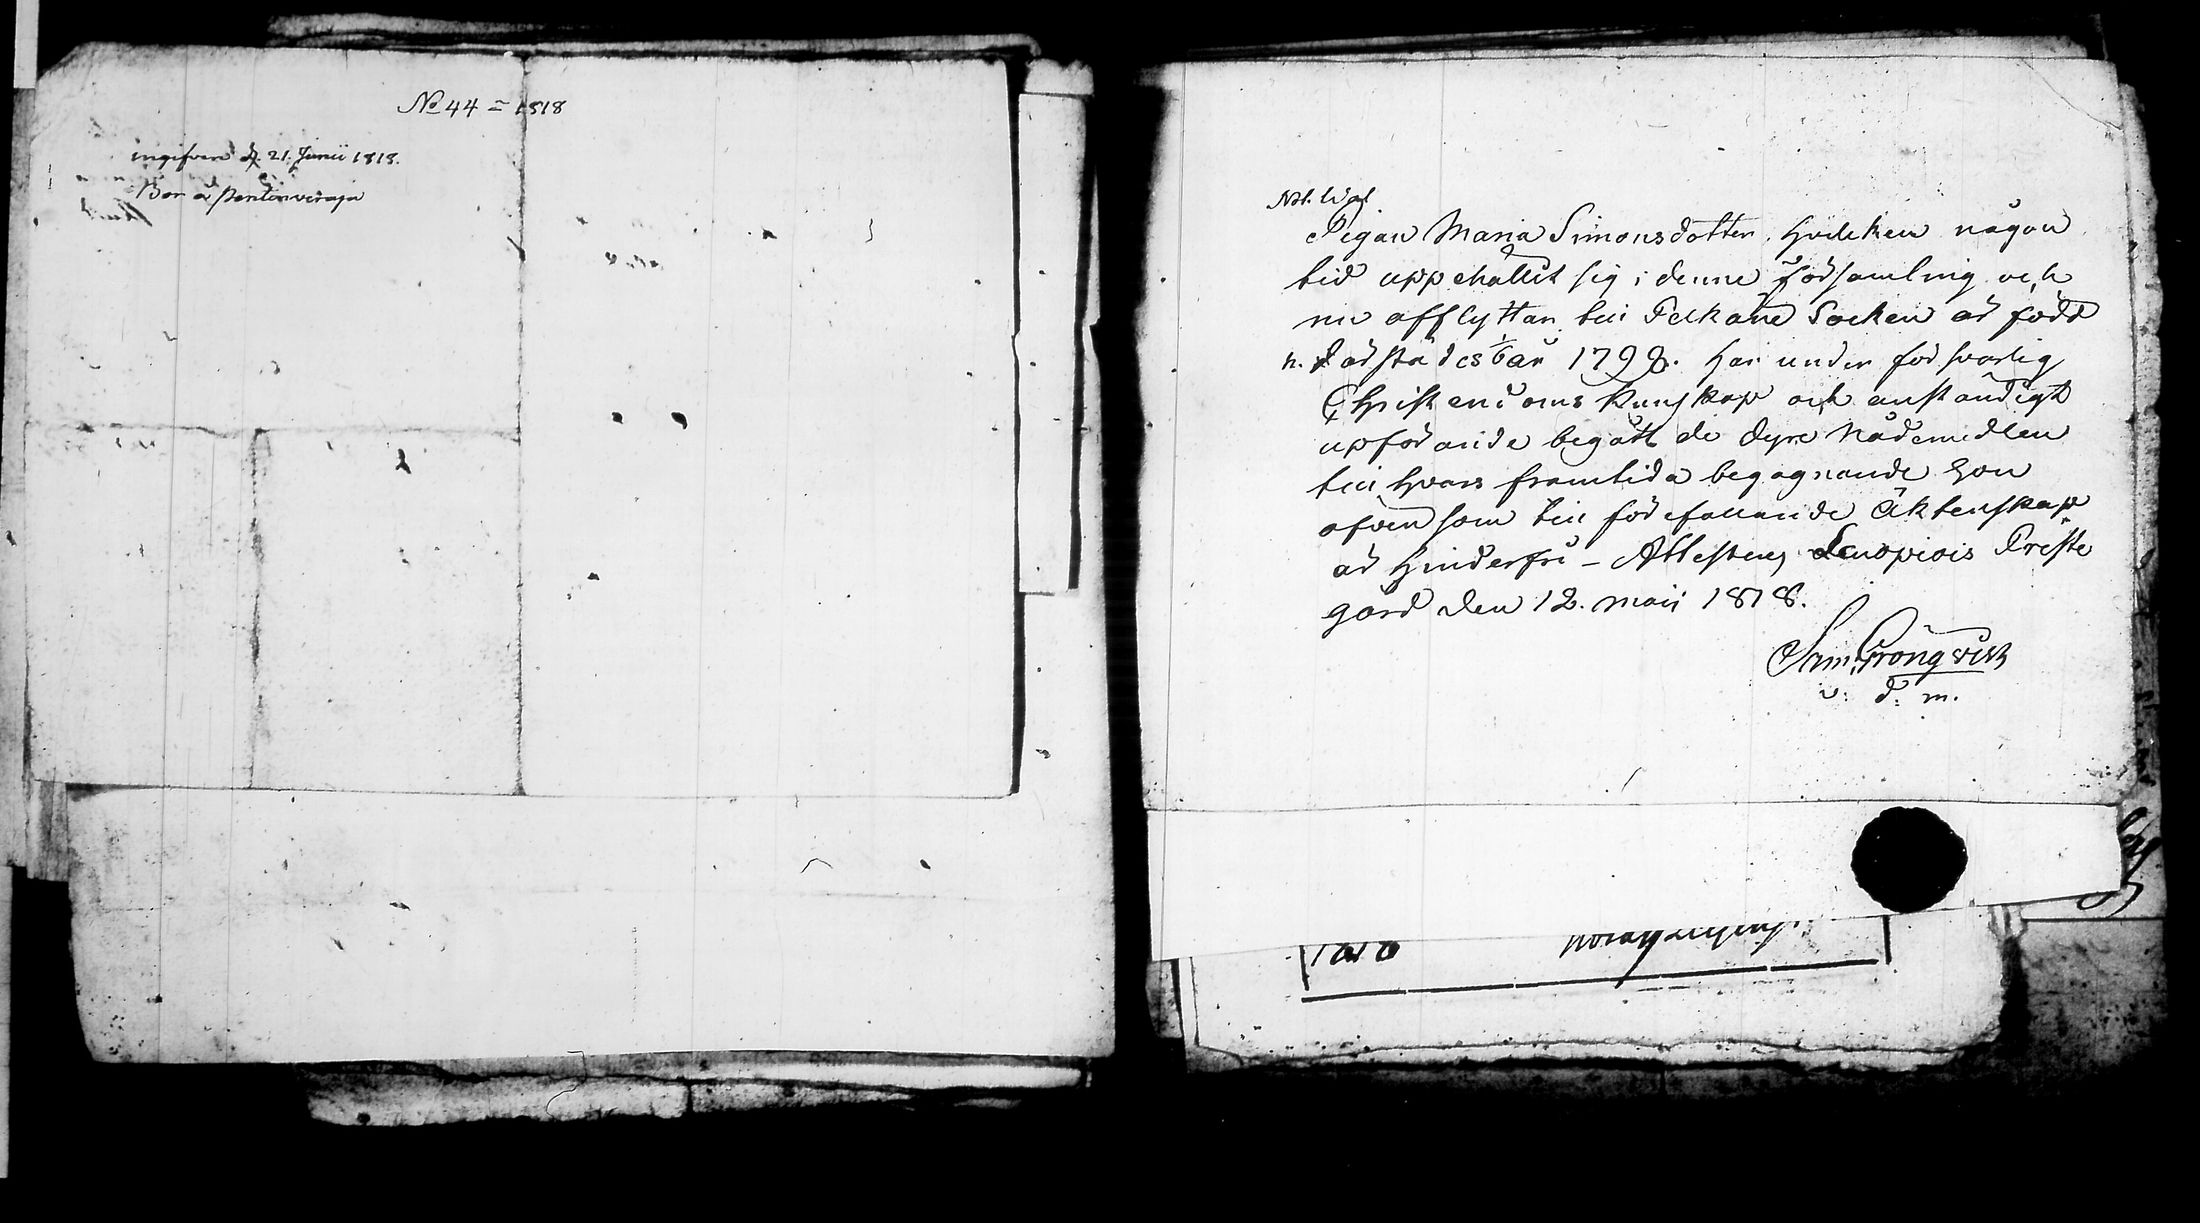 No 44 = 1818
ingifven d. 21. Junii 1818.
Bor å
Pigan Maria Simonsdotter, hvilcken någon
tid uppehållit sig i denne Församling och
nu afflyttar till Pelkäne Socken är född
därstädes år 1798. har under försvarlig
Christendoms kunskap och anständigt
upförande begått de dyre Nådemedlen
till hvars framtida begagnande hon
äfvensom till förefallande Äktenskap
är hinderfri – Attesteras Lenopiois Preste
gård den 12. maii 1818.
Sam. Grönqvist
v: d: m.
1818